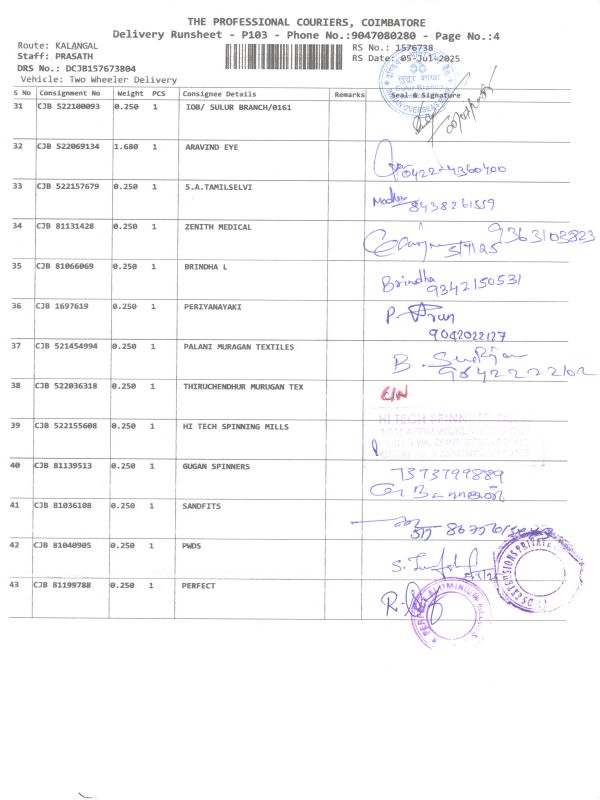 THE PROFESSIONAL COURIERS, COIMBATORE
Delivery Runsheet - P103 - Phone No.:9047080280 - Page No.:4
Route: KALANGAL RS No.: 1576738
Staff: PRASATH RS Date: 05-Jul-2025
DRS No.: DCJB157673804
Vehicle: Two Wheeler Delivery
S No Consignment No Weight PCS Consignee Details Remarks Seal & Signature
31 CJB 522100093 0.250 1 IOB/ SULUR BRANCH/0161
32 CJB 522069134 1.680 1 ARAVIND EYE
0422-4360400
33 CJB 522157679 0.250 1 S.A.TAMILSELVI
8438261559
34 CJB 81131428 0.250 1 ZENITH MEDICAL
9363103823
35 CJB 81066069 0.250 1 BRINDHA L
Brindha
9342150531
36 CJB 1697619 0.250 1 PERIYANAYAKI
P.
9042022127
37 CJB 521454994 0.250 1 PALANI MURAGAN TEXTILES
B.
9842222102
38 CJB 522036318 0.250 1 THIRUCHENDHUR MURUGAN TEX
39 CJB 522155608 0.250 1 HI TECH SPINNING MILLS
HI TECH SPINNING
40 CJB 81139513 0.250 1 GUGAN SPINNERS
7373799889
41 CJB 81036108 0.250 1 SANDFITS
42 CJB 81040905 0.250 1 PWDS
43 CJB 81199788 0.250 1 PERFECT